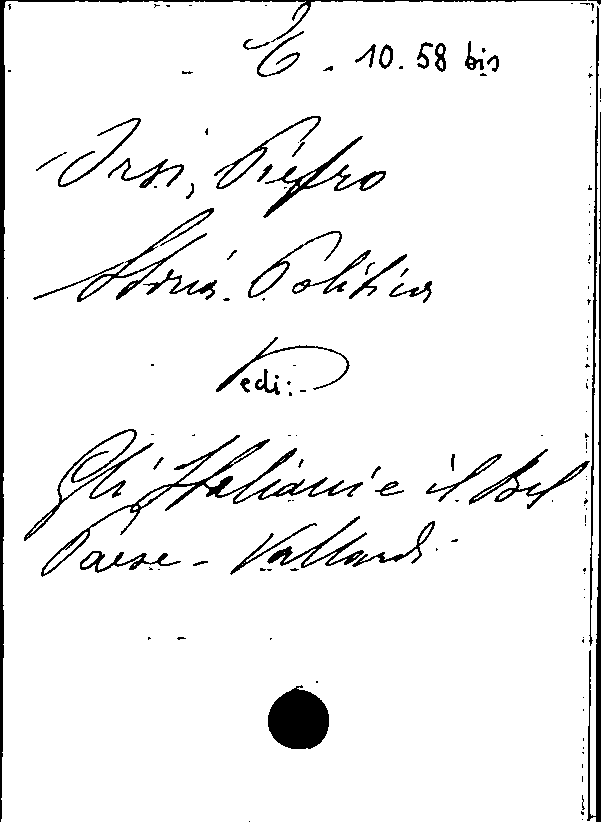 E. 10. 58 bis
Orsi, Pietro
Storia Politica
Vedi:
Gli Italiani e il Bel
Paese - Vallardi